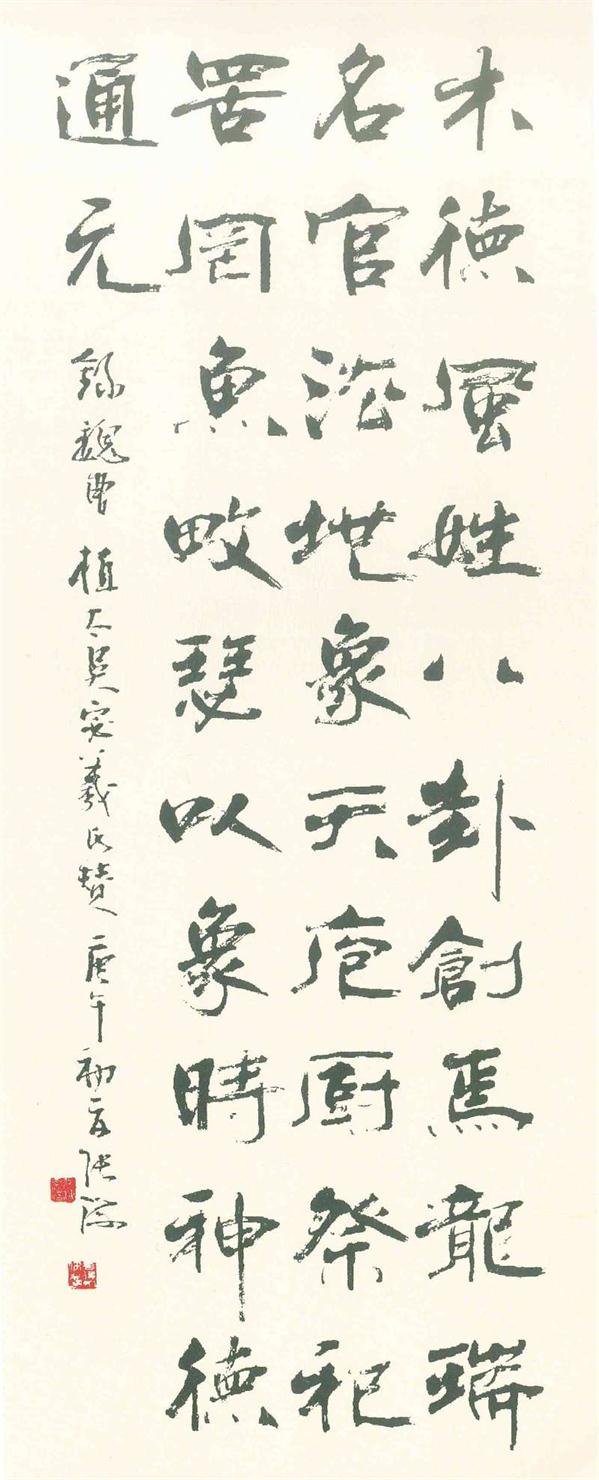 木德風姓八卦創焉龍瑞
名官法地象天庖厨祭祀
罟罔魚畋瑟以象時神德
通元
錄魏曹植太昊宓羲氏贊庚午初夏張